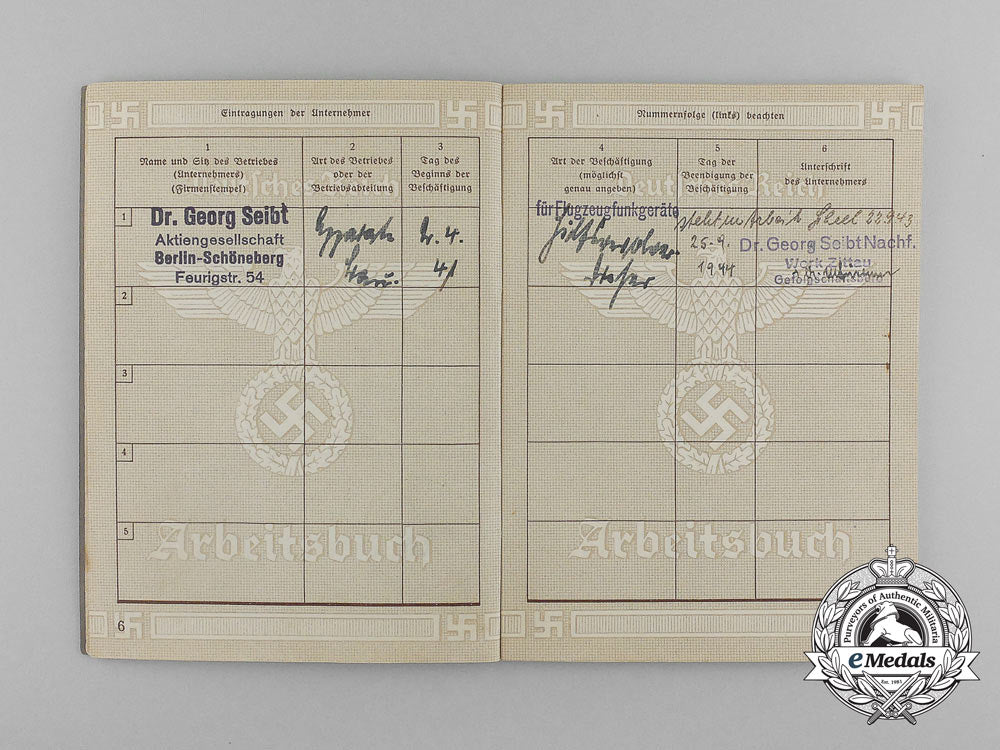 Eintragungen der Unternehmer
1
Name und Sitz des Betriebes
(Unternehmers)
(Firmenstempel)
2
Art des Betriebes
oder der
Betriebsabteilung
3
Tag des
Beginns der
Beschäftigung
1
Dr. Georg Seibt
Aktiengesellschaft
Berlin-Schöneberg
Feurigstr. 54
Apparate
2. 4.
41
2
3
4
5
Arbeitsbuch
6
Nummernfolge (links) beachten
4
Art der Beschäftigung
(möglichst
genau angeben)
5
Tag der
Beendigung der
Beschäftigung
6
Unterschrift
des Unternehmers
Deutsches Reich
für Flugzeugfunkgeräte
25.9.
1944
Dr. Georg Seibt Nachf.
Werk Zittau
Gefolgschaftsbüro
Arbeitsbuch
Purveyors of Authentic Militaria
eMedals
Est. 1981